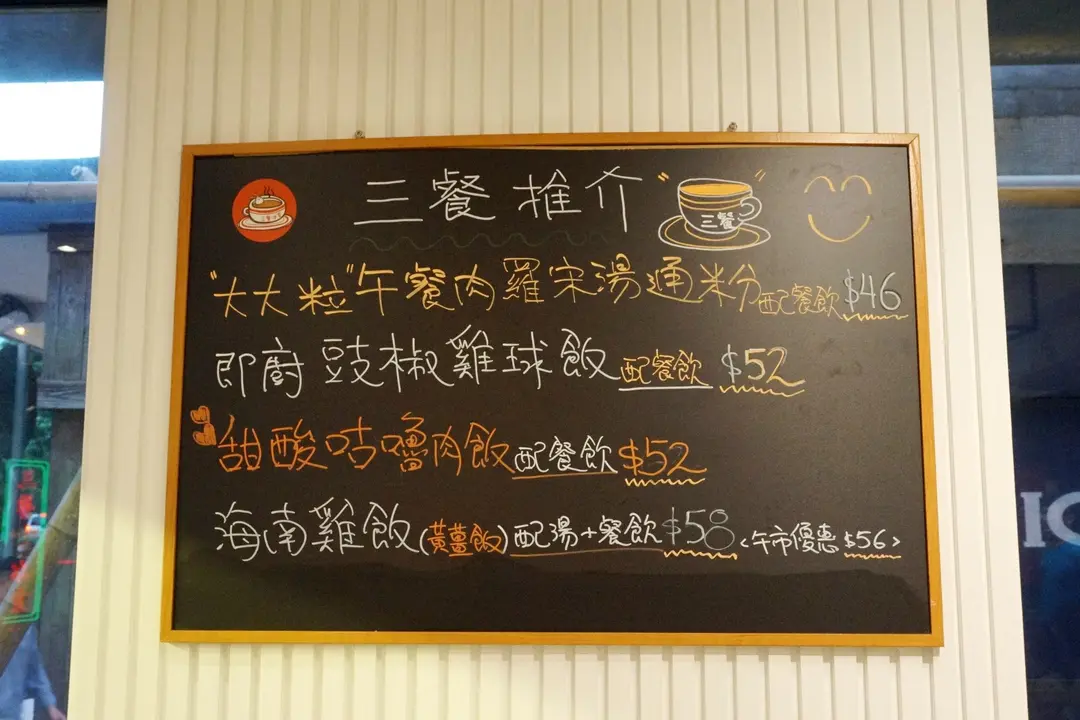 三餐推介
三餐
"大大粒"午餐肉羅宋湯通粉配餐飲$46
即廚豉椒雞球飯配餐飲 $52
甜酸咕嚕肉飯配餐飲$52
海南雞飯(黃薑飯)配湯+餐飲$58<午市優惠$56>
IC